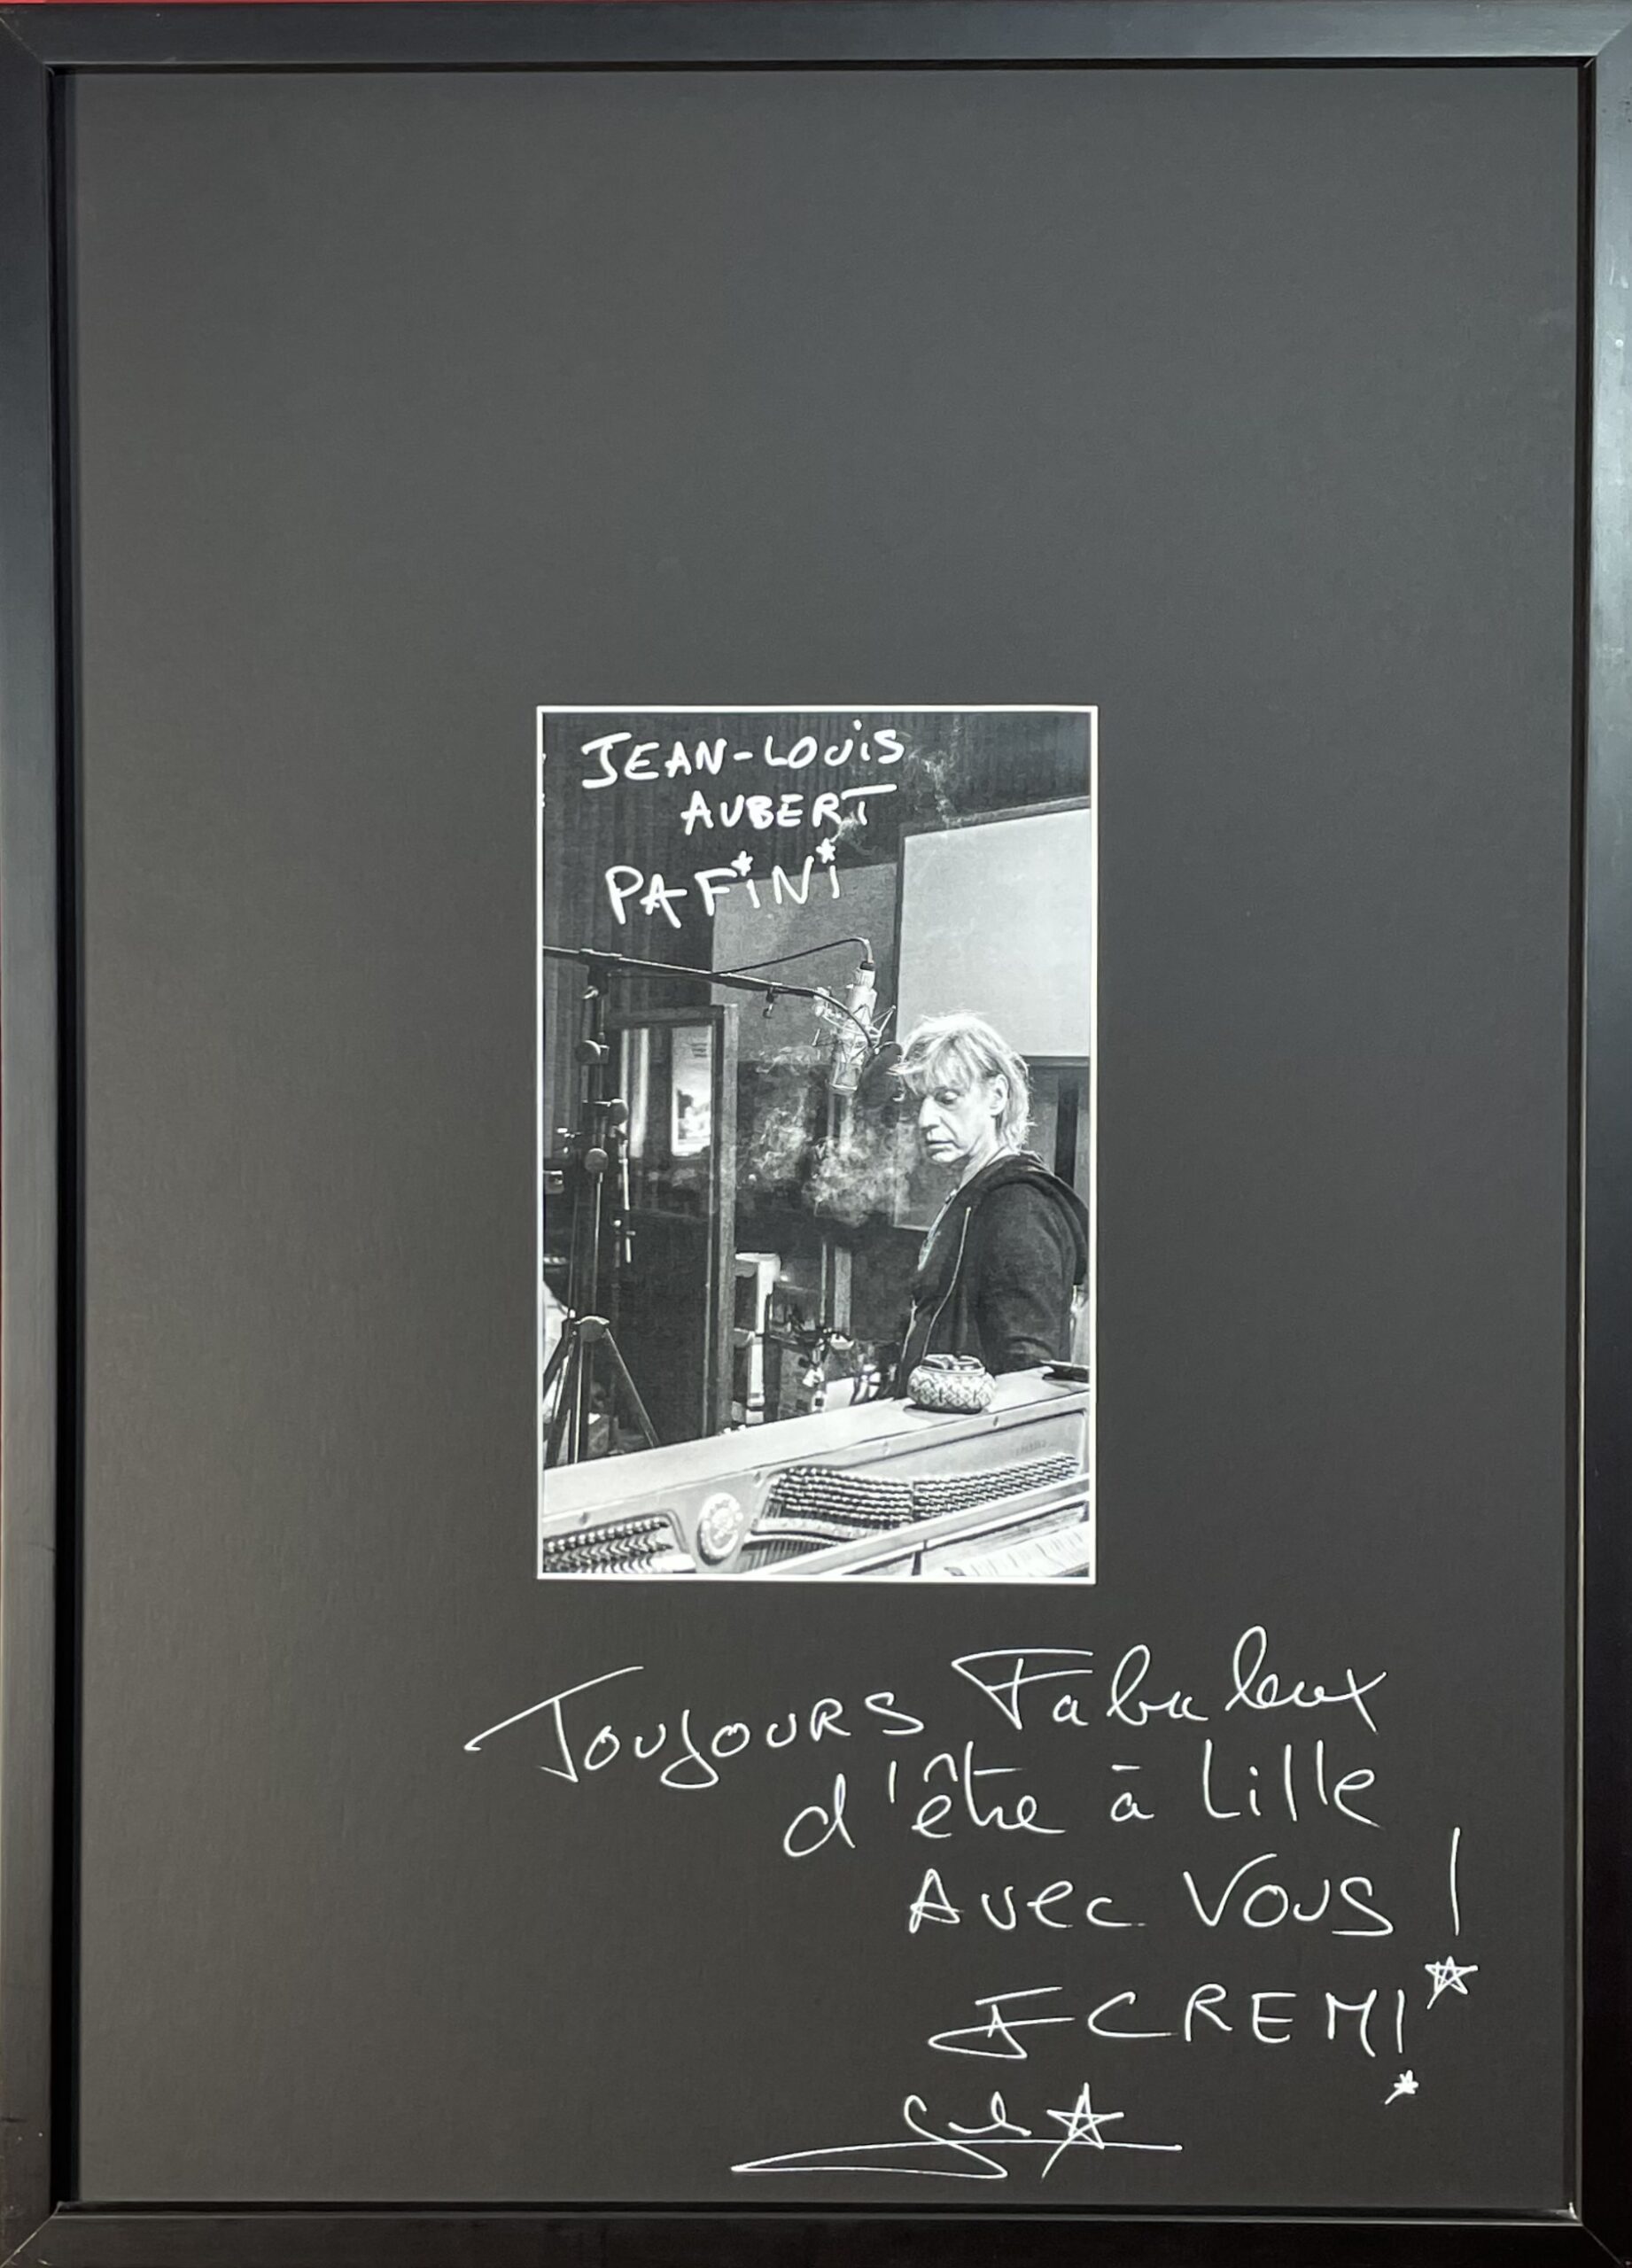 JEAN-LOUiS
AUBERT
PAFiNi
Toujours Fabuleux
d'être à Lille
Avec Vous !